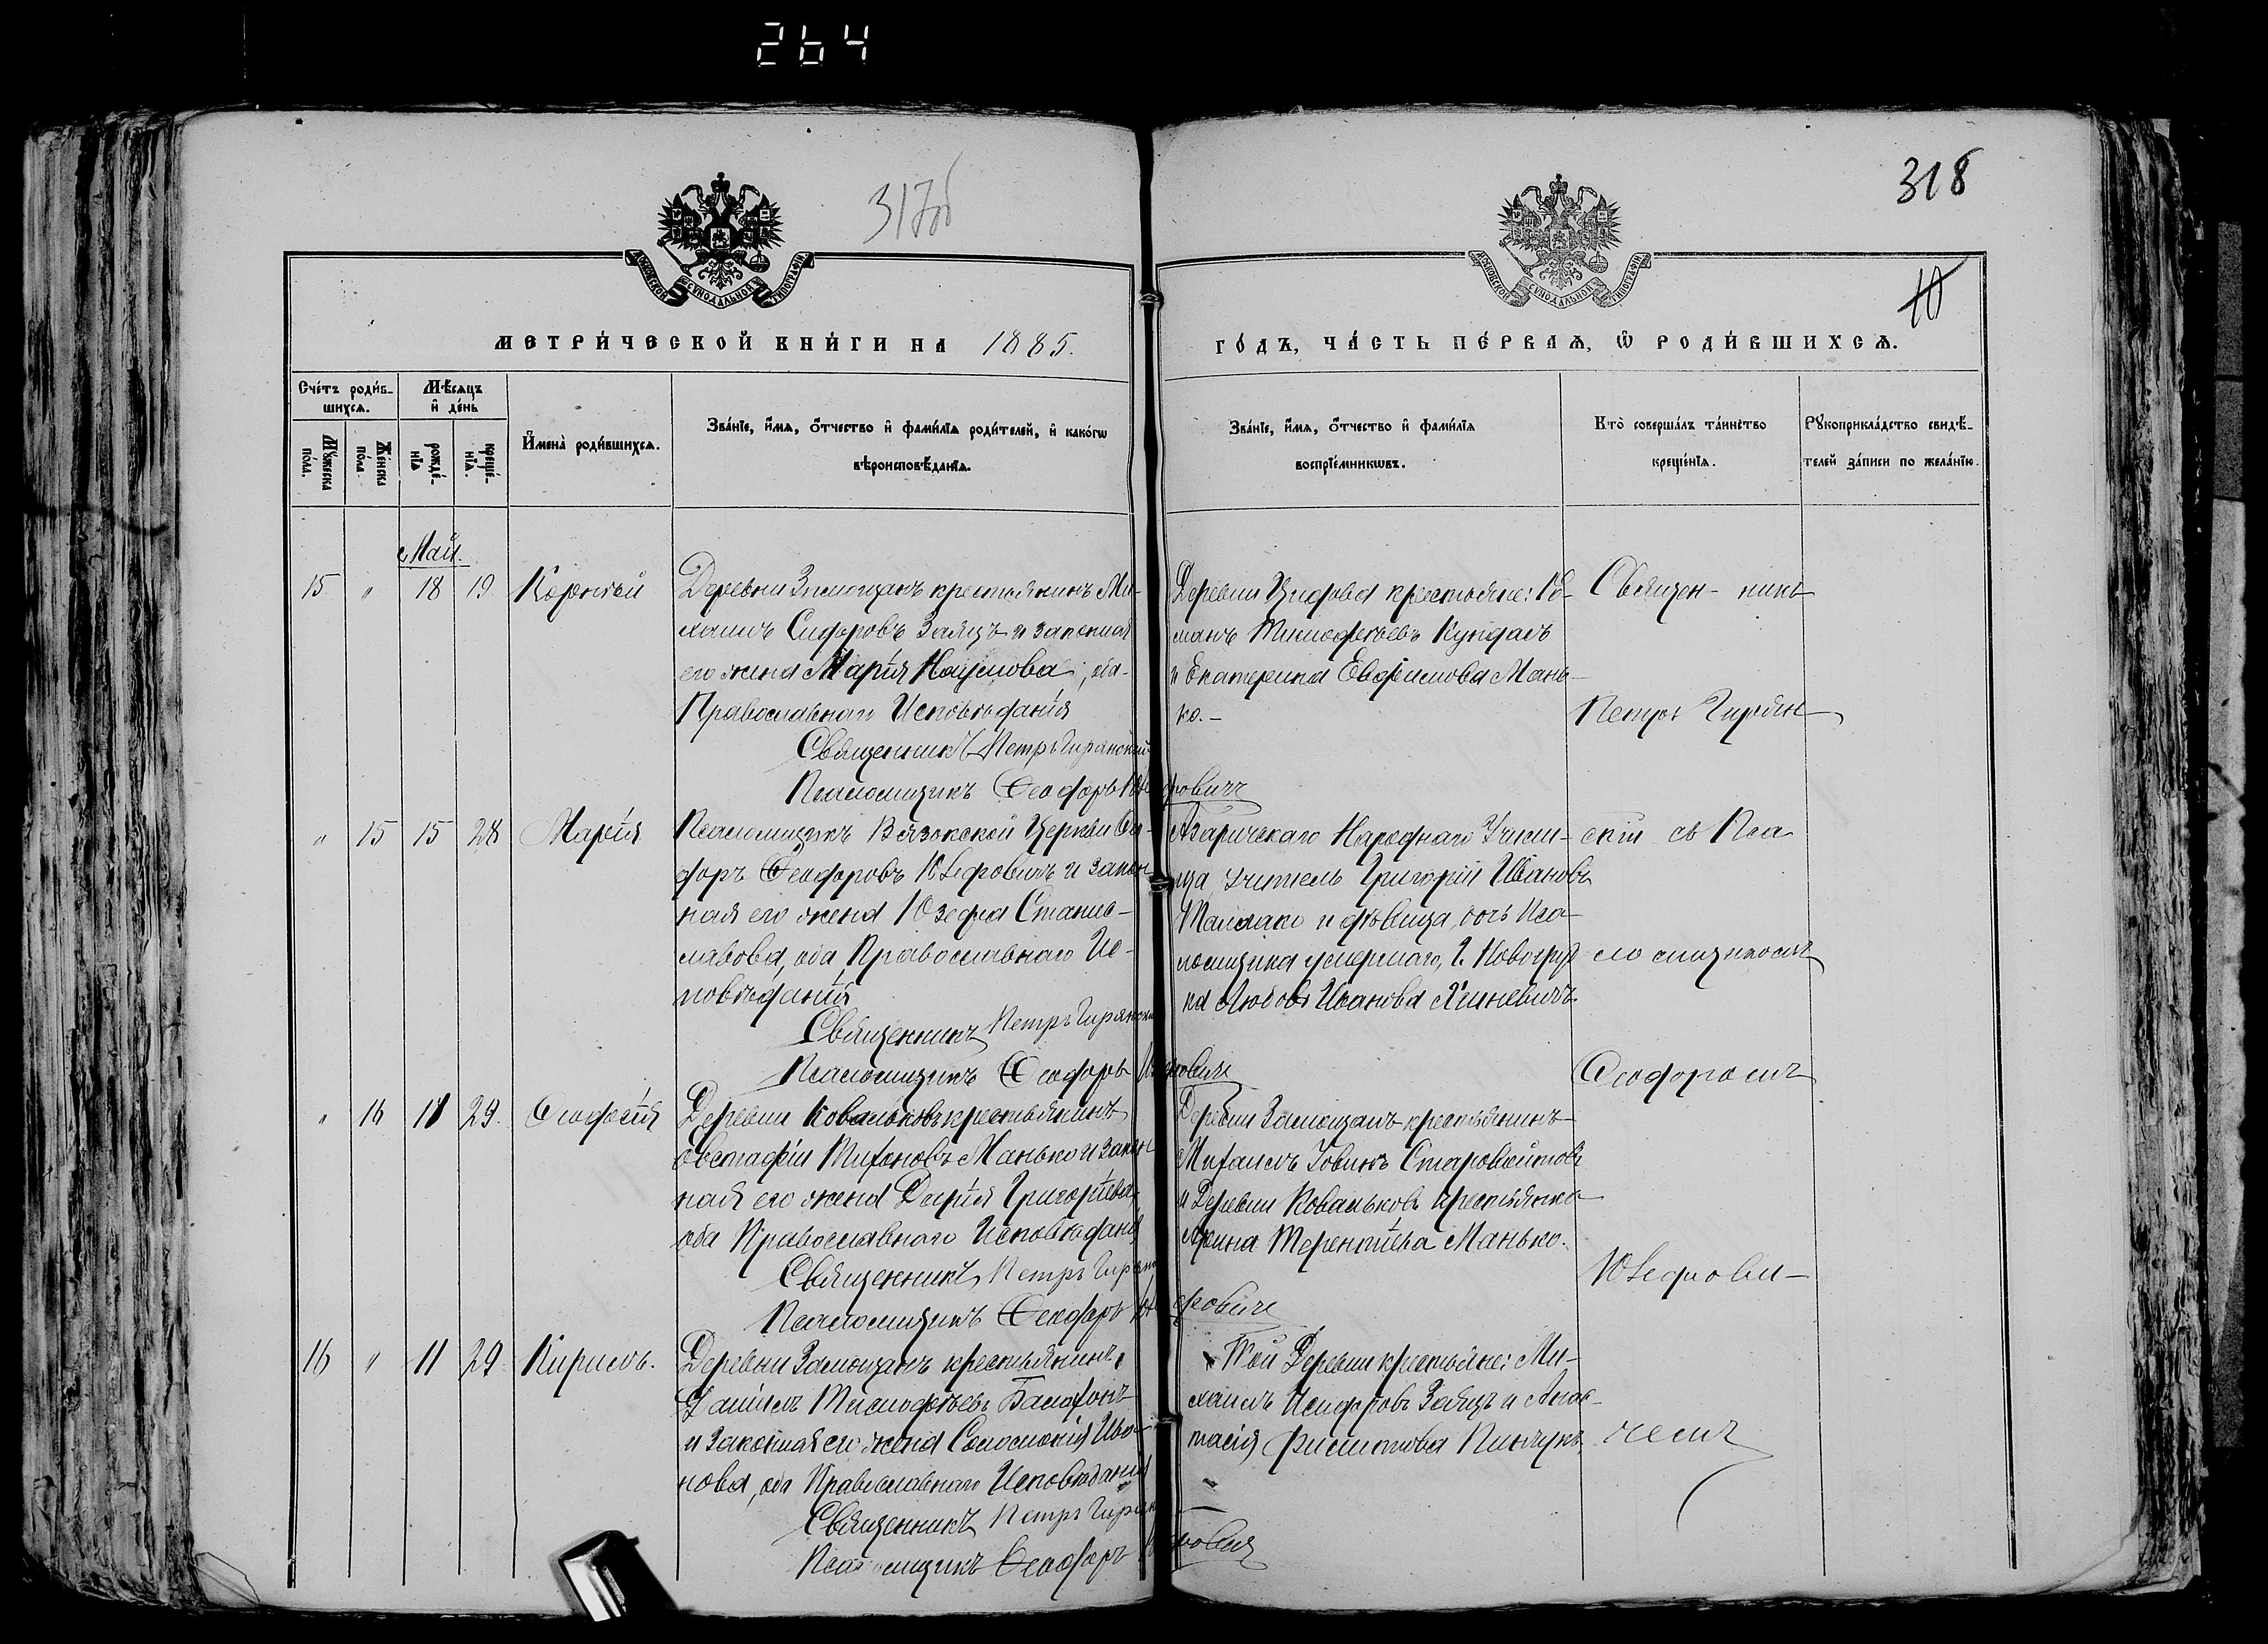 264
317об
318
10
МОСКОВСКОЙ СѴНОДАЛЬНОЙ ТИПОГРАФІИ
МОСКОВСКОЙ СѴНОДАЛЬНОЙ ТИПОГРАФІИ
МЕТРИ́ЧЕСКОЙ КНИ́ГИ НА 1885.
ГО́ДЪ, ЧА́СТЬ ПЕ́РВАѦ, Ѿ РОДИ́ВШИХСѦ.
Сче́тъ роди́вшихсѧ.
Мѣ́сѧцъ и҆ де́нь
Мꙋ́жеска по́ла.
Же́нска по́ла
рожде́нїѧ
креще́нїѧ.
И҆мена̀ роди́вшихсѧ.
Зва́нїе, и҆́мѧ, ѻ҆́тчество и҆ фами́лїѧ роди́телей, и҆ како́гѡ
вѣроисповѣ́данїѧ.
Зва́нїе, и҆́мѧ, ѻ҆́тчество и҆ фами́лїѧ
воспрїе́мникѡвъ.
Кто̀ соверша́лъ та́инство
креще́нїѧ.
Рꙋкоприкла́дство свидѣ́-
телей за́писи по жела́нїю.
Май.
15 " 18 19 Корнилій
Деревни Замощанъ крестьянинъ Ми-
хаилъ Сидоровъ Заяцъ и законная
его жена Марія Наумова, оба
Православнаго Исповѣданія
Священникъ Петръ Гирянскій
Псаломщикъ Ѳеодоръ Юзефовичъ
крестьяне: Ро-
манъ Тимофеевъ Кундасъ
и Екатерина Евфимова Мань-
ко.-
Священ- никъ
Петръ Гирян-
" 15 15 28 Марія
Псаломщикъ Вязокской Церкви Ѳе-
доръ Ѳеодоровъ Юзефовичъ и закон
ная его жена Юзефа Станис-
лавова, оба Православнаго Ис-
повѣданія
Священникъ Петръ Гирянскій
Псаломщикъ Ѳеодоръ Юзефовичъ
Азаричскаго Народнаго Учили-
ща учитель Григорій Ивановъ
и дѣвица, дочь Пса-
ломщика умершаго, г. Новогруд-
ка Любовь Иванова
скій съ Пса
ломщикомъ
Ѳеодоромъ
" 16 18 29. Ѳеодосія
Деревни Ковальковъ крестьянинъ
Евстафій Тихоновъ Манько и закон
ная его жена Дарія Григоріева,
оба Православнаго Исповѣданія
Священникъ Петръ Гирянскій
Псаломщикъ Ѳеодоръ Юзефовичъ
Деревни Замощанъ крестьянинъ
Михаилъ Іовинъ Старовойтовъ
и Деревни Ковальковъ крестьянка
Арина Терентіева Манько.
Юзефови-
16 " 11 29. Кирилъ.
Деревни Замощанъ крестьянинъ
Даніилъ Тимофеевъ
и законная его жена Соломонія Ива-
нова, оба Православнаго Исповѣданія
Священникъ Петръ Гирянскій
Псаломщикъ Ѳеодоръ Юзефовичъ
Той Деревни крестьяне: Ми-
хаилъ Исидоровъ Заяцъ и Анас-
тасія Филиппова Пинчукъ
чемъ